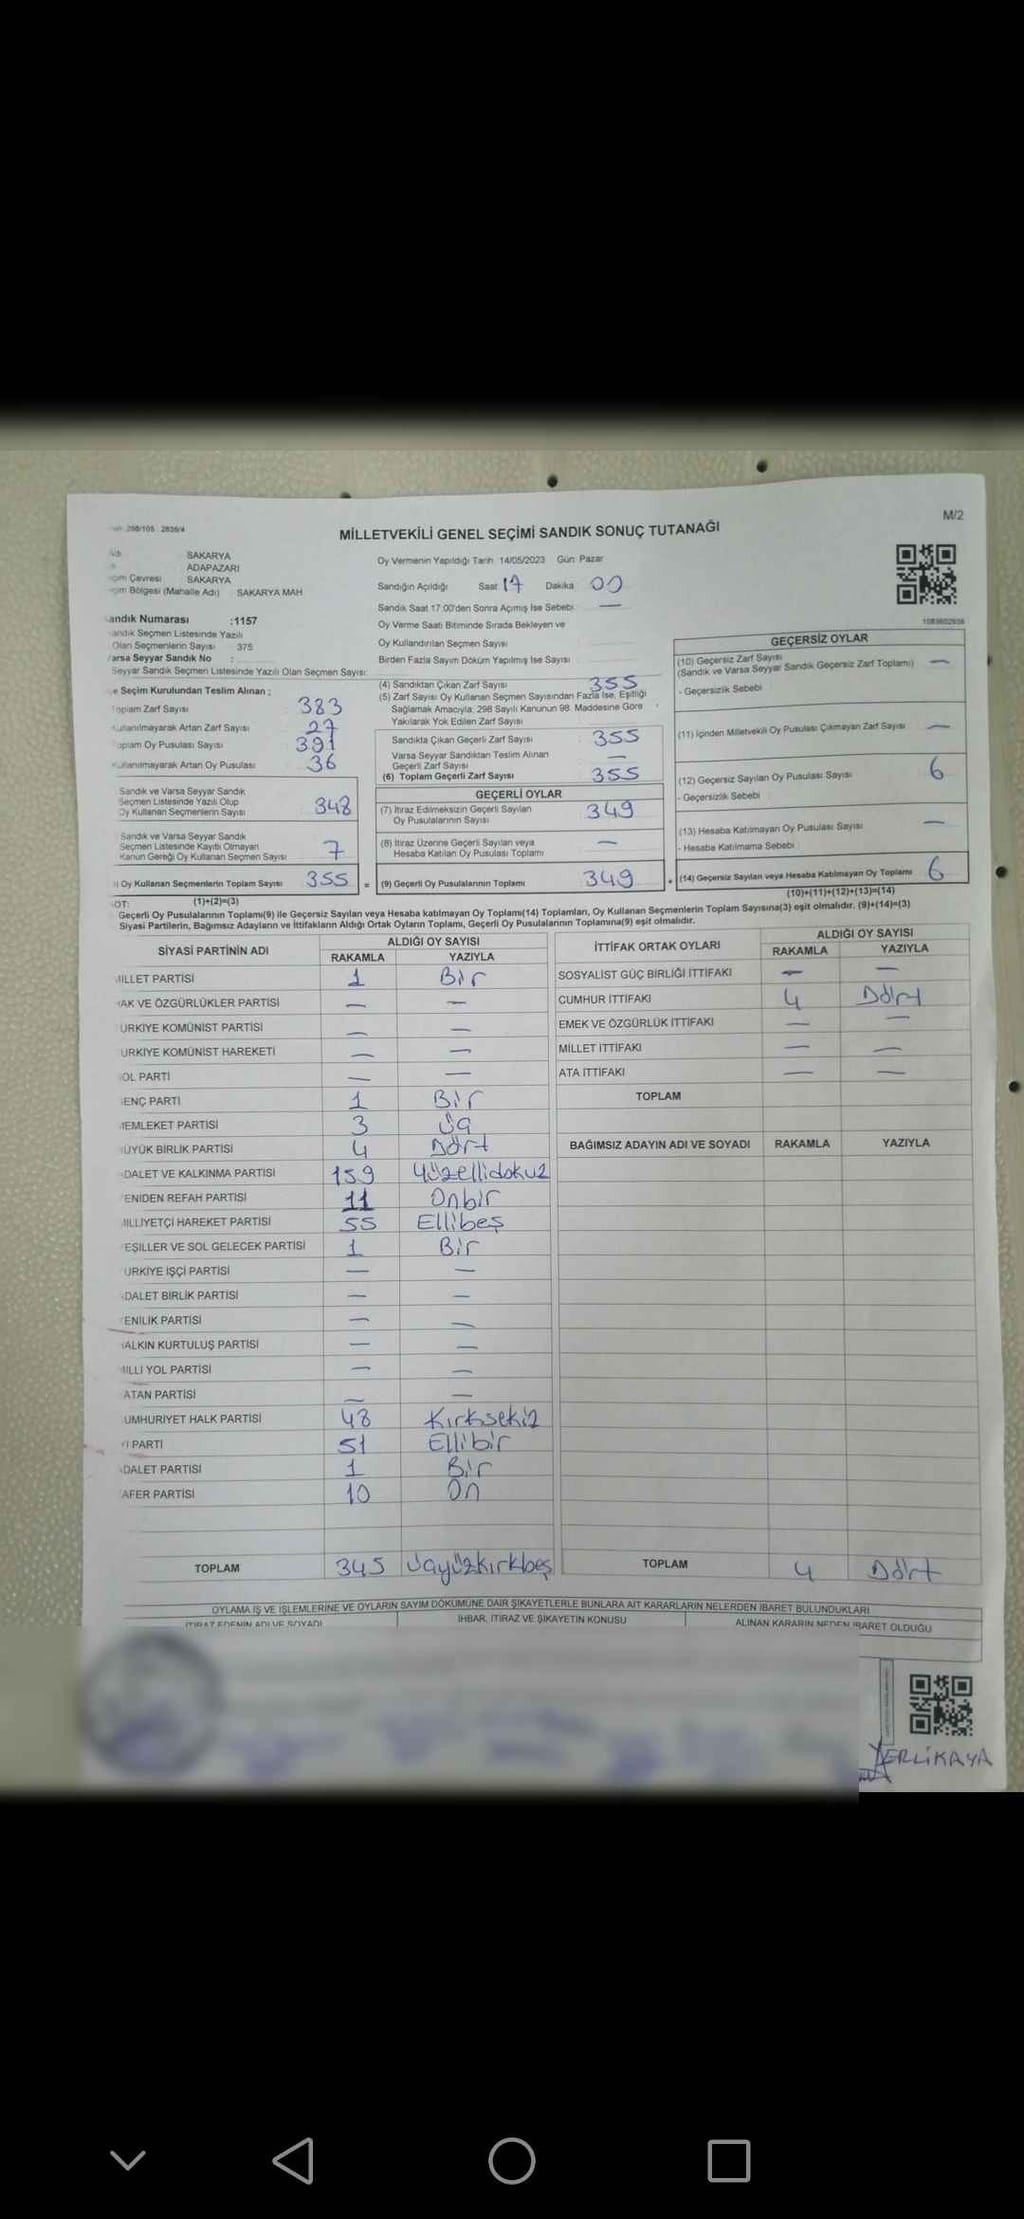 M/2
MİLLETVEKİLİ GENEL SEÇİMİ SANDIK SONUÇ TUTANAĞI
SAKARYA
ADAPAZARI
Çevresi SAKARYA
Bölgesi (Mahalle Adı) SAKARYA MAH
andık Numarası :1157
andık Seçmen Listesinde Yazılı
Olan Seçmenlerin Sayısı 375
arsa Seyyar Sandık No :
Seyyar Sandık Seçmen Listesinde Yazılı Olan Seçmen Sayısı:
Oy Vermenin Yapıldığı Tarih 14/05/2023 Gün: Pazar
Sandığın Açıldığı Saat 17 Dakika 00
Sandık Saat 17:00'den Sonra Açımış İse Sebebi —
Oy Verme Saati Bitiminde Sırada Bekleyen ve
Oy Kullandırılan Seçmen Sayısı
Birden Fazla Sayım Döküm Yapılmış İse Sayısı
e Seçim Kurulundan Teslim Alınan ;
Toplam Zarf Sayısı 383
Kullanılmayarak Artan Zarf Sayısı 27
oplam Oy Pusulası Sayısı 391
Kullanılmayarak Artan Oy Pusulası 36
Sandık ve Varsa Seyyar Sandık
Seçmen Listesinde Yazılı Olup
Oy Kullanan Seçmenlerin Sayısı 348
Sandık ve Varsa Seyyar Sandık
Seçmen Listesinde Kayıtlı Olmayan
Kanun Gereği Oy Kullanan Seçmen Sayısı 7
Oy Kullanan Seçmenlerin Toplam Sayısı 355 =
(1)+(2)=(3)
(4) Sandıktan Çıkan Zarf Sayısı 355
(5) Zarf Sayısı Oy Kullanan Seçmen Sayısından Fazla İse, Eşitliği
Sağlamak Amacıyla; 298 Sayılı Kanunun 98. Maddesine Göre
Yakılarak Yok Edilen Zarf Sayısı
Sandıkta Çıkan Geçerli Zarf Sayısı 355
Varsa Seyyar Sandıktan Teslim Alınan
Geçerli Zarf Sayısı —
(6) Toplam Geçerli Zarf Sayısı 355
GEÇERLİ OYLAR
(7) İtiraz Edilmeksizin Geçerli Sayılan
Oy Pusulalarının Sayısı 349
(8) İtiraz Üzerine Geçerli Sayılan veya
Hesaba Katılan Oy Pusulası Toplamı —
(9) Geçerli Oy Pusulalarının Toplamı 349 +
GEÇERSİZ OYLAR
(10) Geçersiz Zarf Sayısı
(Sandık ve Varsa Seyyar Sandık Geçersiz Zarf Toplamı) —
- Geçersizlik Sebebi
(11) İçinden Milletvekili Oy Pusulası Çıkmayan Zarf Sayısı —
(12) Geçersiz Sayılan Oy Pusulası Sayısı 6
- Geçersizlik Sebebi
(13) Hesaba Katılmayan Oy Pusulası Sayısı —
- Hesaba Katılmama Sebebi
(14) Geçersiz Sayılan veya Hesaba Katılmayan Oy Toplamı 6
(10)+(11)+(12)+(13)=(14)
OT:
Geçerli Oy Pusulalarının Toplamı(9) ile Geçersiz Sayılan veya Hesaba katılmayan Oy Toplamı(14) Toplamları, Oy Kullanan Seçmenlerin Toplam Sayısına(3) eşit olmalıdır. (9)+(14)=(3)
Siyasi Partilerin, Bağımsız Adayların ve İttifakların Aldığı Ortak Oyların Toplamı, Geçerli Oy Pusulalarının Toplamına(9) eşit olmalıdır.
SİYASİ PARTİNİN ADI ALDIĞI OY SAYISI
RAKAMLA YAZIYLA
MİLLET PARTİSİ 1 Bir
AK VE ÖZGÜRLÜKLER PARTİSİ — —
URKİYE KOMÜNİST PARTİSİ — —
URKİYE KOMÜNİST HAREKETİ — —
OL PARTİ — —
ENÇ PARTİ 1 Bir
EMLEKET PARTİSİ 3 Üç
ÜYÜK BİRLİK PARTİSİ 4 Dört
DALET VE KALKINMA PARTİSİ 159 Yüzellidokuz
ENİDEN REFAH PARTİSİ 11 Onbir
MİLLİYETÇİ HAREKET PARTİSİ 55 Ellibeş
EŞİLLER VE SOL GELECEK PARTİSİ 1 Bir
URKİYE İŞÇİ PARTİSİ — —
DALET BİRLİK PARTİSİ — —
ENİLİK PARTİSİ — —
ALKIN KURTULUŞ PARTİSİ — —
MİLLİ YOL PARTİSİ — —
ATAN PARTİSİ — —
UMHURİYET HALK PARTİSİ 48 Kırksekiz
Yİ PARTİ 51 Ellibir
DALET PARTİSİ 1 Bir
AFER PARTİSİ 10 On
TOPLAM 345 Üçyüzkırkbeş
İTTİFAK ORTAK OYLARI ALDIĞI OY SAYISI
RAKAMLA YAZIYLA
SOSYALİST GÜÇ BİRLİĞİ İTTİFAKI — —
CUMHUR İTTİFAKI 4 Dört
EMEK VE ÖZGÜRLÜK İTTİFAKI — —
MİLLET İTTİFAKI — —
ATA İTTİFAKI — —
TOPLAM
BAĞIMSIZ ADAYIN ADI VE SOYADI RAKAMLA YAZIYLA
TOPLAM 4 Dört
OYLAMA İŞ VE İŞLEMLERİNE VE OYLARIN SAYIM DÖKÜMÜNE DAİR ŞİKAYETLERLE BUNLARA AİT KARARLARIN NELERDEN İBARET BULUNDUKLARI
İTİRAZ EDENİN ADI VE SOYADI İHBAR, İTİRAZ VE ŞİKAYETİN KONUSU ALINAN KARARIN NEDEN İBARET OLDUĞU
YERLİKAYA